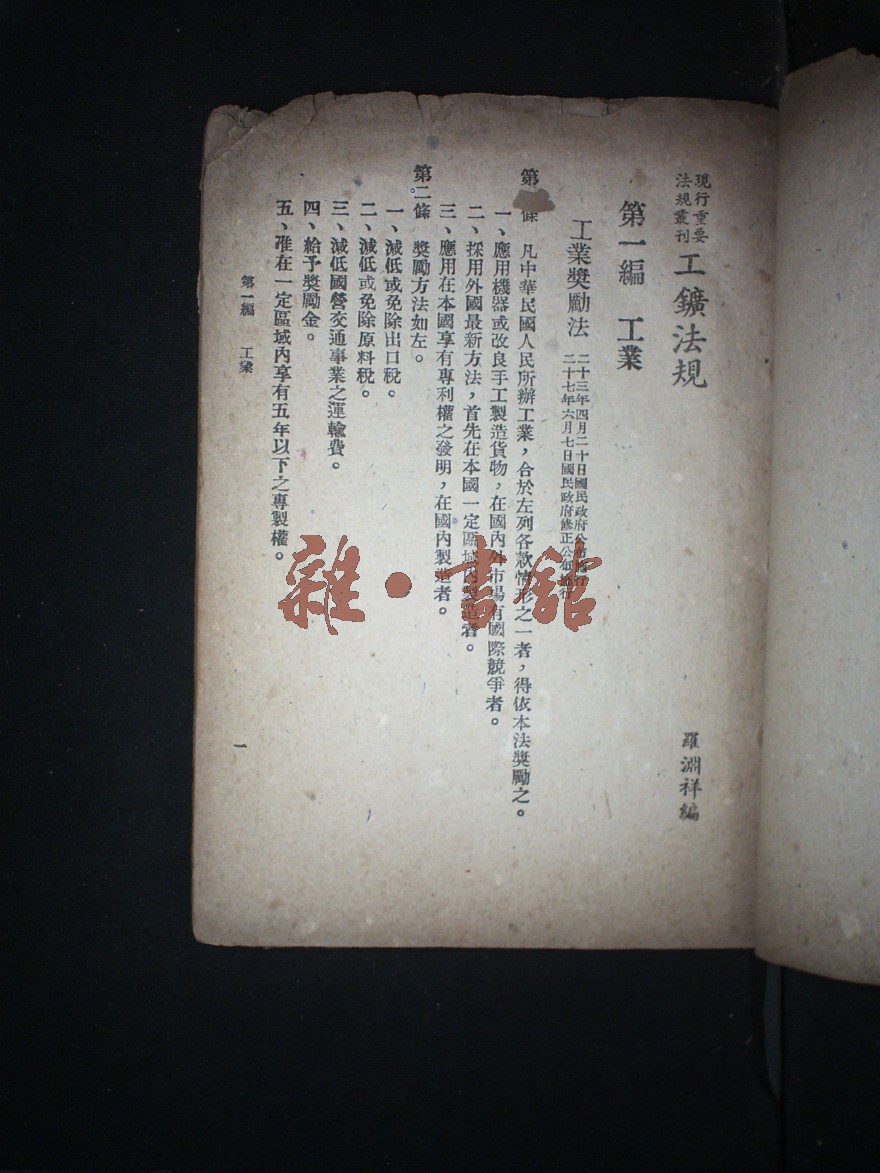 現行重要
法規叢刊
工鑛法規
羅淵祥編
第一編　工業
工業獎勵法
二十三年四月二十日國民政府公布施行
二十七年六月七日國民政府修正公布施行
第　條　凡中華民國人民所辦工業，合於左列各款情形之一者，得依本法獎勵之。
一、應用機器或改良手工製造貨物，在國內外市場有國際競爭者。
二、採用外國最新方法，首先在本國一定區域內製造者。
三、應用在本國享有專利權之發明，在國內製造者。
第二條　獎勵方法如左。
一、減低或免除出口稅。
二、減低或免除原料稅。
三、減低國營交通事業之運輸費。
四、給予獎勵金。
五、准在一定區域內享有五年以下之專製權。
第一編　工業
一
雜·書館